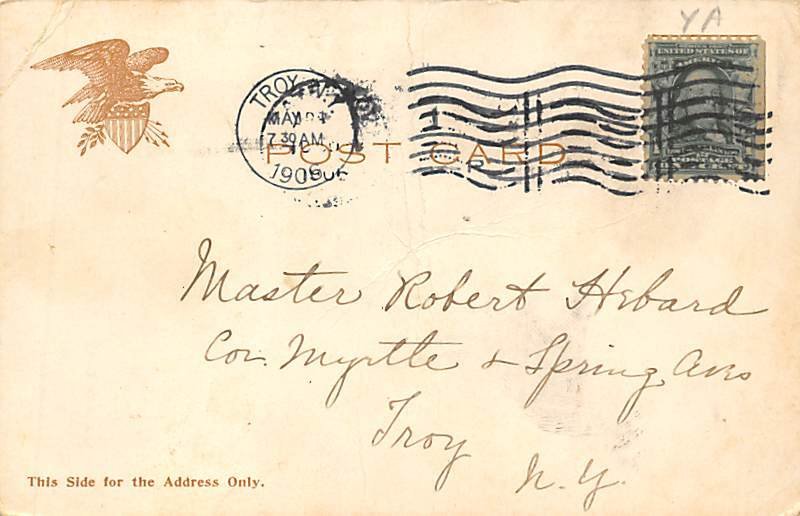 YA
UNITED STATES OF
AMERICA
TROY, N.Y.
MAY
7 30 AM
1906
POST CARD
Master Robert Hebard
Cor. Myrtle & Spring Aves
Troy
N.Y.
This Side for the Address Only.